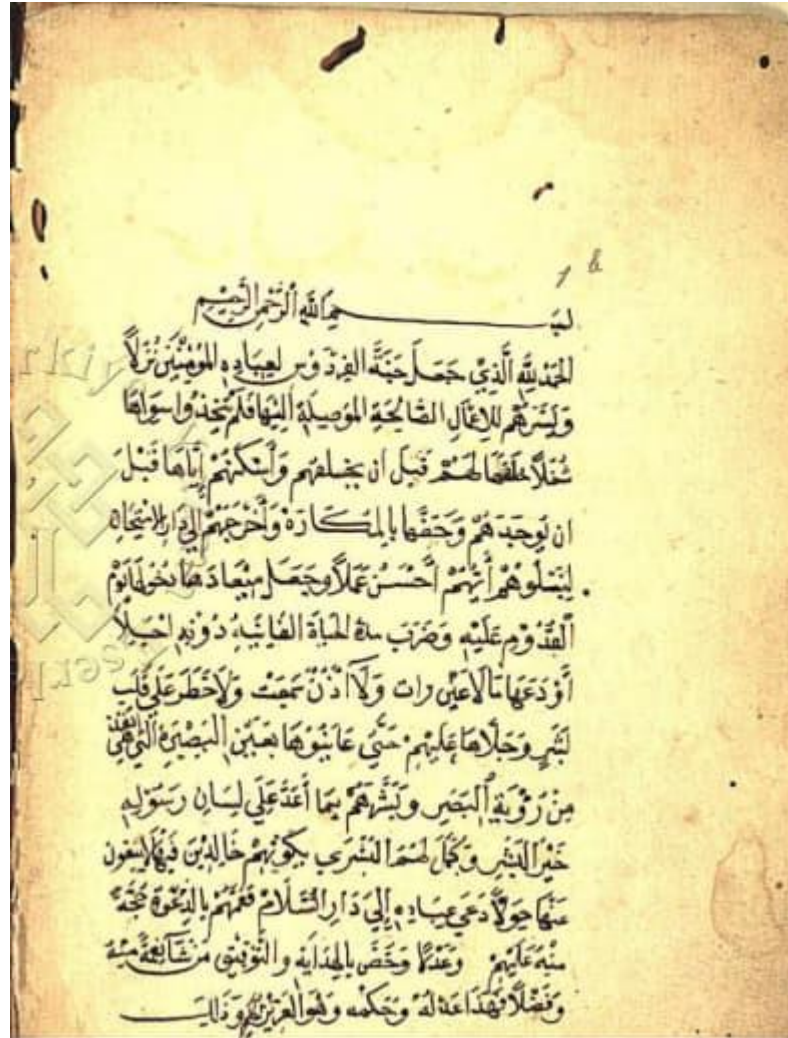 1 b
بسم الله الرحمن الرحيم
الحمد لله الذي جعل جنة الفردوس لعباده المؤمنين نزلا
ويسرهم للاعمال الصالحة الموصلة اليها فلم يتخذوا سواها
شغلا خلقها لهم قبل ان يخلقهم وأسكنهم إياها قبل
ان يوجدهم وحفها بالمكاره وأخرجهم إلي دار الامتحان
ليبلوهم أيهم أحسن عملا وجعل ميعاد دخولها يوم
القدوم عليه وضرب مدة الحياة الفانية دونه اجلا
أودعها مالا عين رات ولا أذن سمعت ولا خطر علي قلب
بشر وجلاها عليهم حتي عاينوها بعين البصيرة التي هي انفذ
من رؤية البصر وبشرهم بما أعد علي لسان رسوله
خير البشر وكمل لهم البشري بكونهم خالدين فيها لا يبغون
عنها حولا دعي عباده إلي دار السلام فعمهم بالدعوة حجة
منه عليهم وعدلا وخص بالهداية والتوفيق من شا نعمة منه
وفضلا فهذا عدله وحكمه وهو العزيز الحكيم وذلك